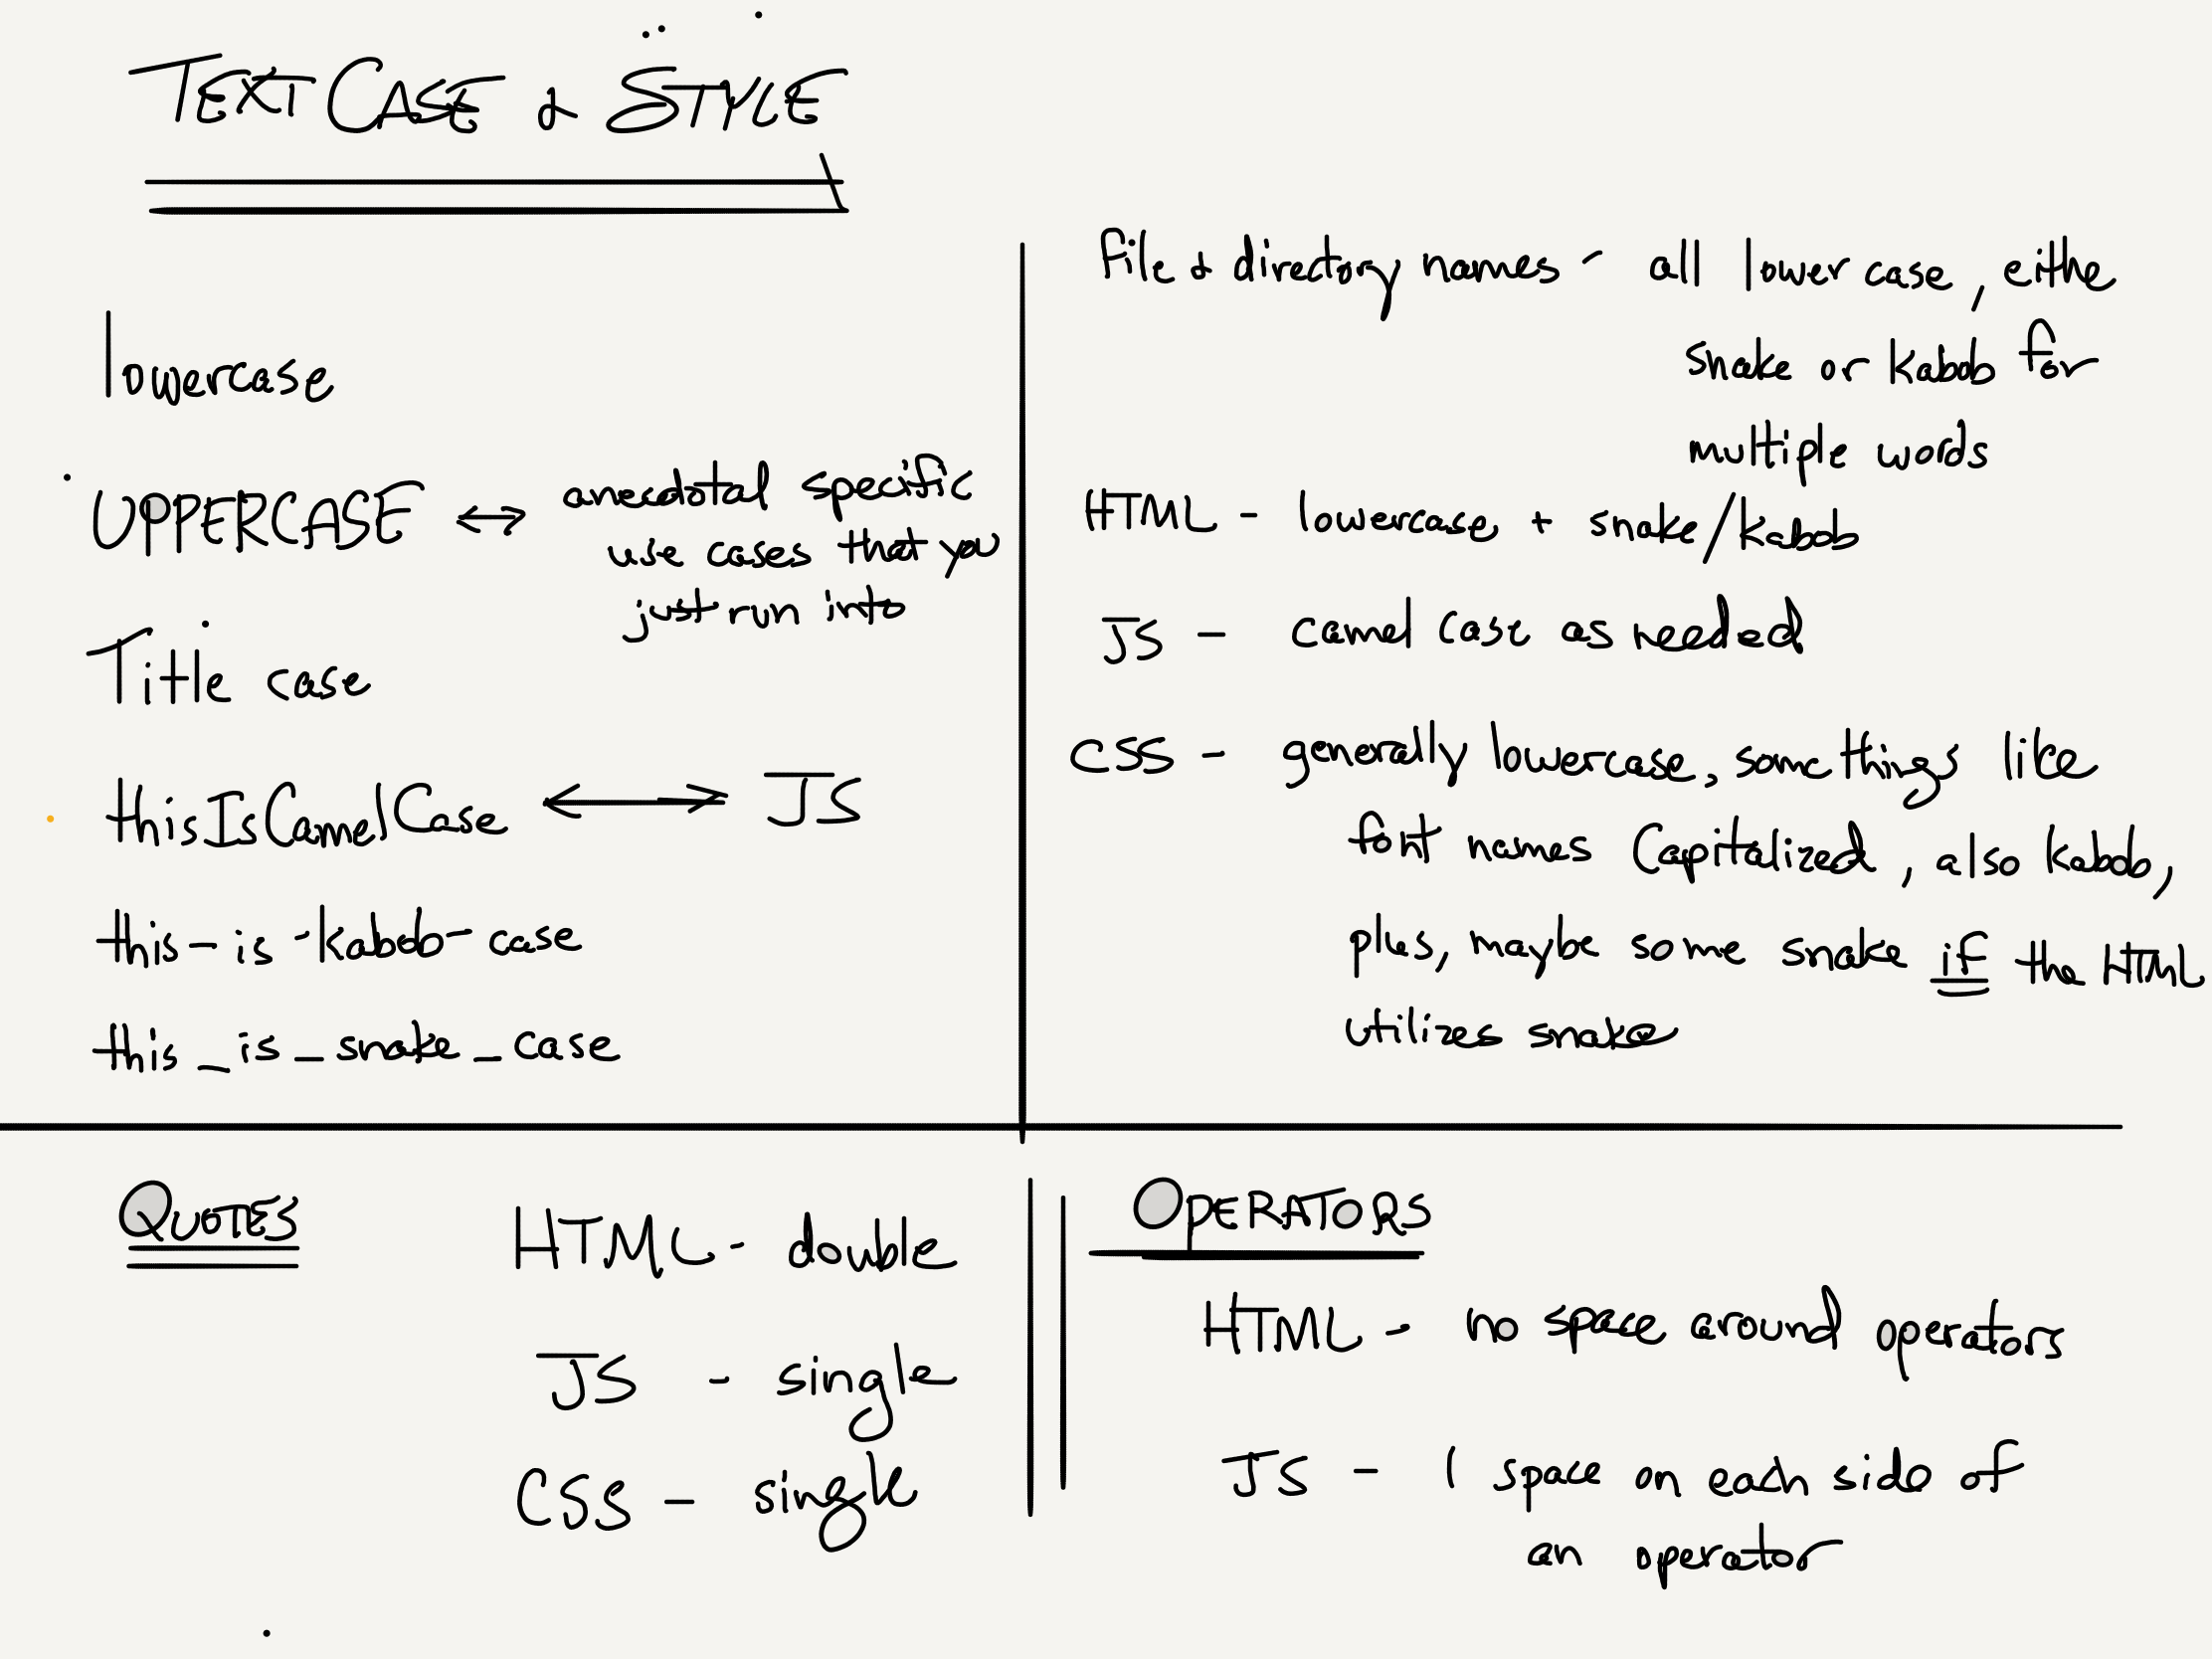 TEXT CASE & STYLE
lowercase
UPPERCASE ↔ anecdotal specific
use cases that you
just run into
Title case
thisIsCamelCase ↔ JS
this-is-kabob-case
this_is_snake_case
file & directory names - all lower case, eithe
snake or kabob for
multiple words
HTML - lowercase + snake/kabob
JS - camel case as needed
CSS - generally lowercase, some things like
font names Capitalized, also kabob,
plus, maybe some snake if the HTML
utilizes snake
QUOTES
HTML - double
JS - single
CSS - single
OPERATORS
HTML - no space around operators
JS - 1 space on each side of
an operator